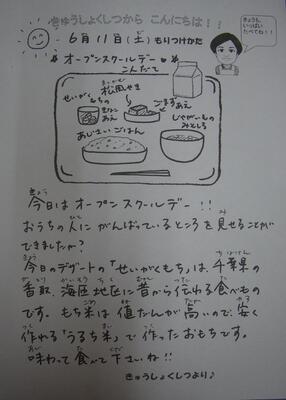 きゅうしょくしつから こんにちは！！
きょうも、
いっぱい
たべてね！！
6月11日(土)もりつけかた
オープンスクールデー
こんだて
まつかぜ
松風やき
せいがく
もちの
きなこ
あえ
ごまず
あえ
じゃがいもの
みそしる
あじさいごはん
きょう
今日はオープンスクールデー！！
おうちの人にがんばっているところを見せることが
できましたか？
今日のデザートの「せいがくもち」は、千葉県の
香取、海匝地区に昔から伝わる食べもの
です。もち米は値だんが高いので、安く
作れる「うるち米」で作ったおもちです。
味わって食べて下さいね！！
きゅうしょくしつより♪